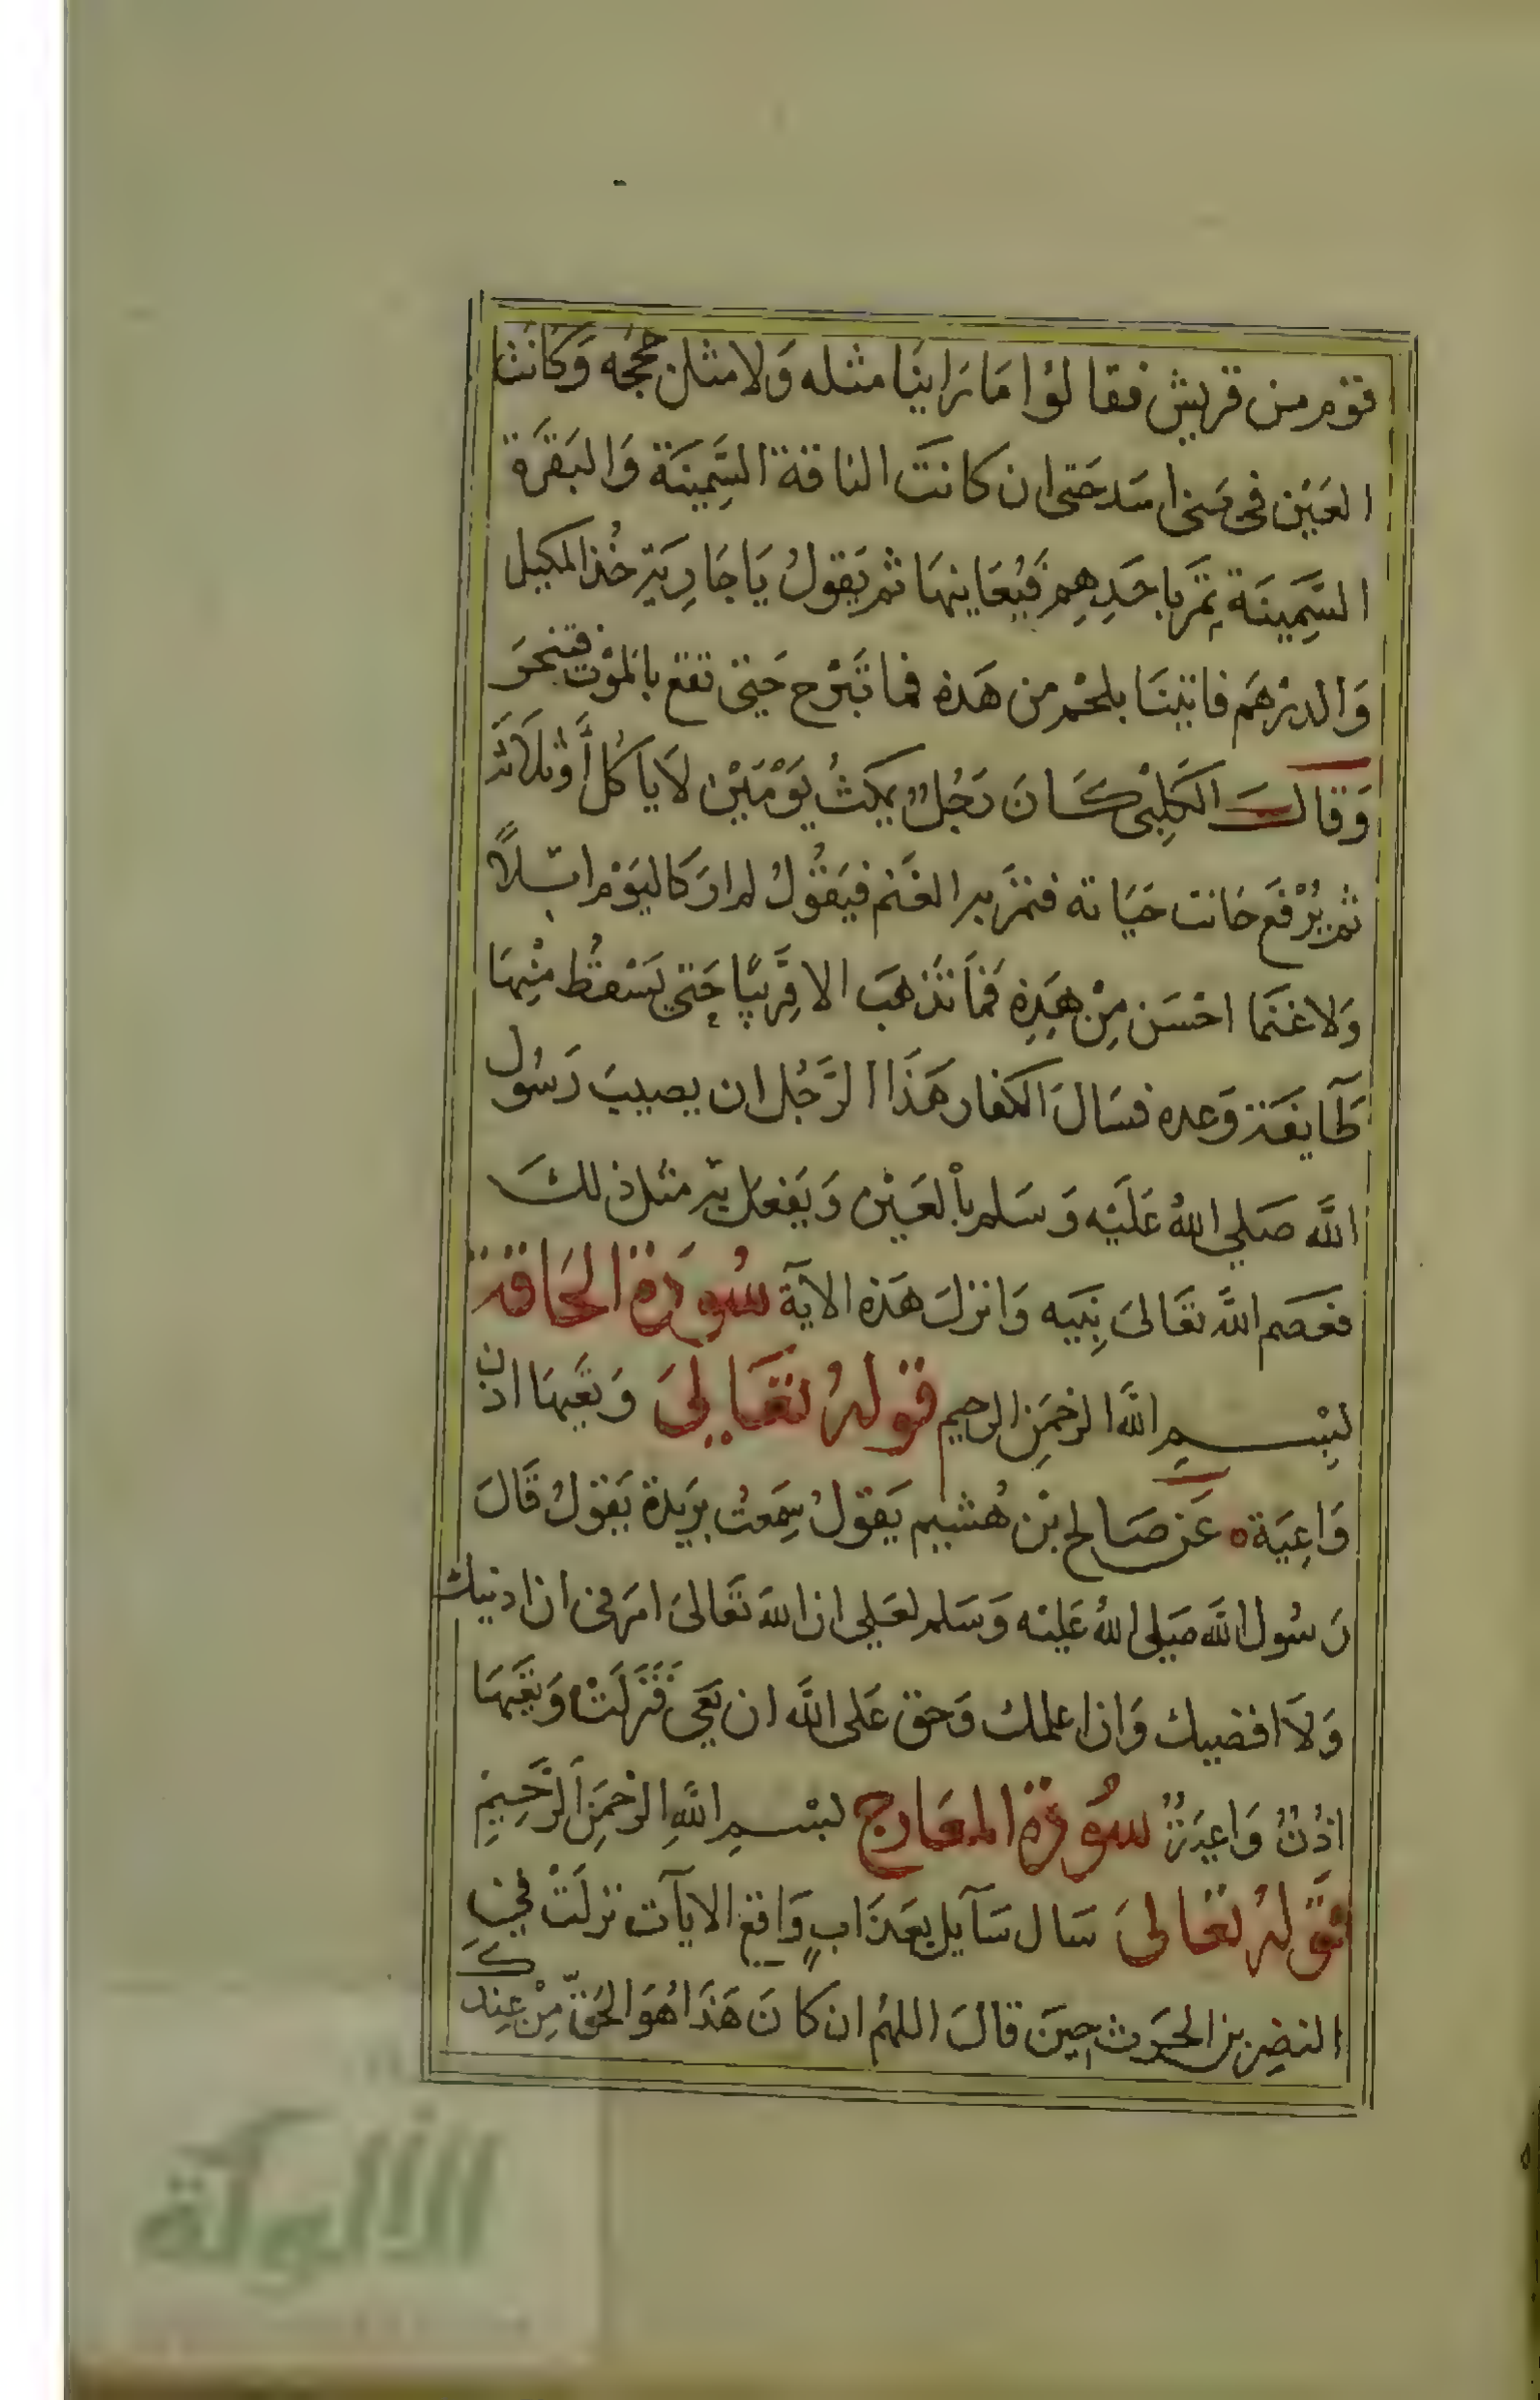 قوم من قريش فقالوا ما راينا مثله ولا مثل حججه وكانت
العين في بني اسد حتى ان كانت الناقة السمينة والبقرة
السمينة تمر باحدهم فيعاينها ثم يقول يا جارية خذ المكيل
والدرهم فاتينا بلحم من هذه فما تبرح حتى تقع بالموت فتنحر
وقال الكلبي كان رجل يمكث يومين لا ياكل او ثلاثة
ثم يرفع جانب خبائه فتمر به الغنم فيقول لم ار كاليوم ابلا
ولا غنما احسن من هذه فما تذهب الا قريبا حتى يسقط منها
طايفة وعده فسال الكفار هذا الرجل ان يصيب رسول
الله صلى الله عليه وسلم بالعين ويفعل به مثل ذلك
فعصم الله تعالى نبيه وانزل هذه الاية سورة الحاقة
بسم الله الرحمن الرحيم قوله تعالى وتعيها اذن
واعية عن صالح بن هشيم يقول سمعت بريدة يقول قال
رسول الله صلى الله عليه وسلم لعلي ان الله تعالى امرني ان ادنيك
ولا اقصيك وان اعلمك وحق على الله ان تعي فنزلت وتعيها
اذن واعية سورة المعارج بسم الله الرحمن الرحيم
قوله تعالى سال سآيل بعذاب واقع الايآت نزلت في
النضر بن الحرث حين قال اللهم ان كان هذا هو الحق من عندك
الألوكة